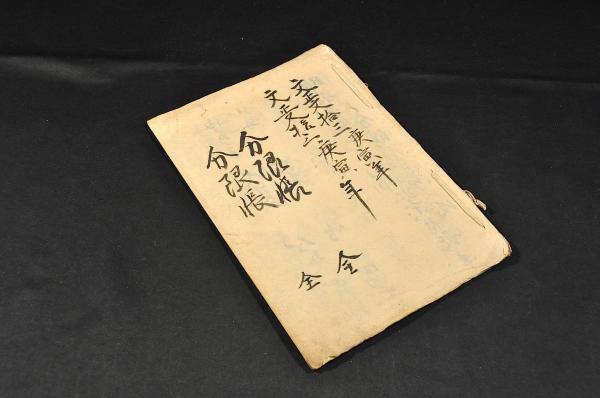 文政拾三庚寅年
文政拾三庚寅年
分限帳 全
分限帳 全